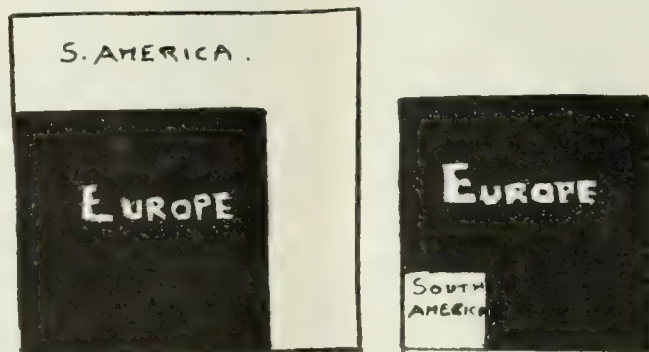 S. AMERICA.
EUROPE
EUROPE
SOUTH
AMERICA